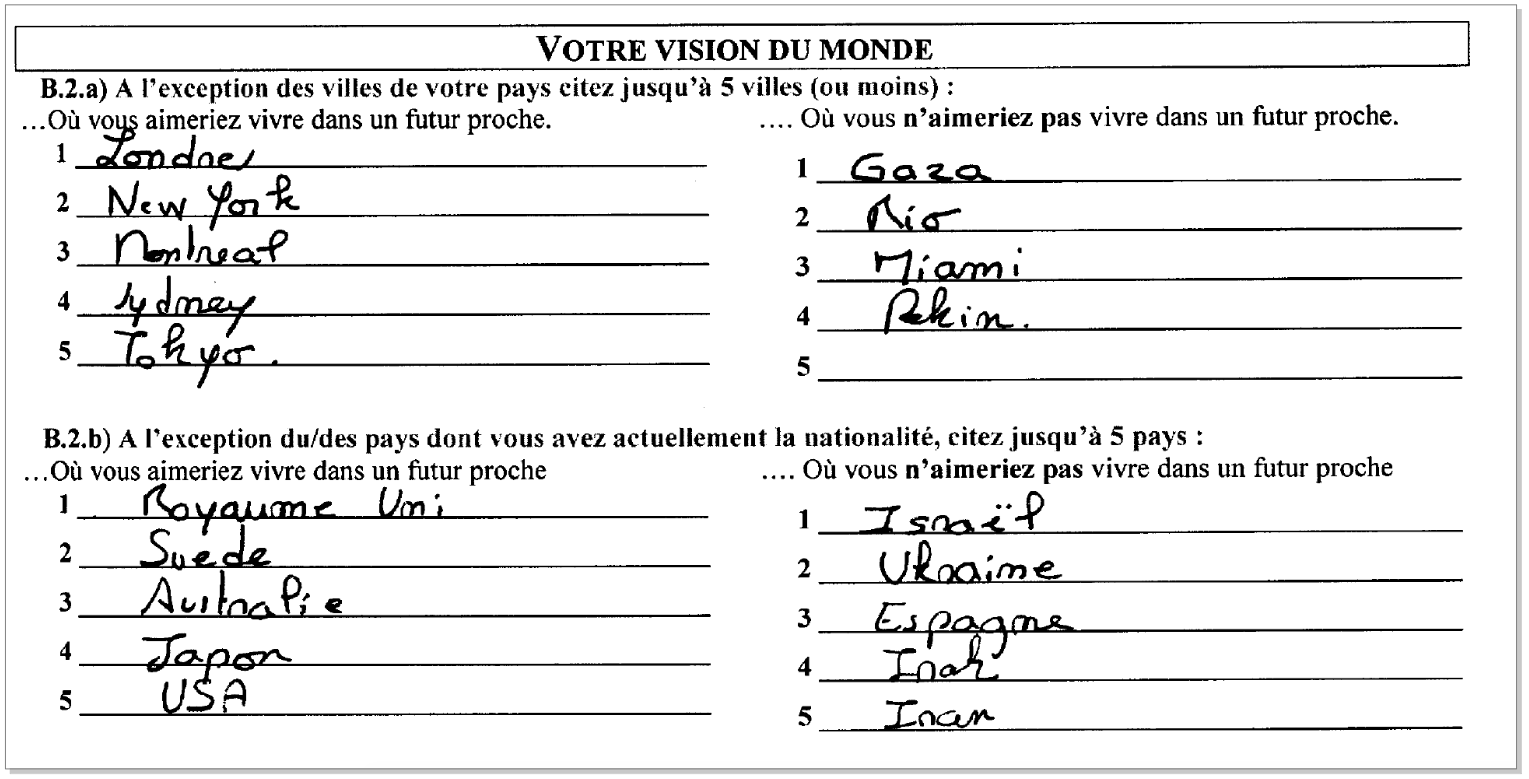 VOTRE VISION DU MONDE
B.2.a) A l'exception des villes de votre pays citez jusqu'à 5 villes (ou moins) :
...Où vous aimeriez vivre dans un futur proche.
1 Londres
2 New York
3 Montreal
4 Sydney
5 Tokyo.
.... Où vous n'aimeriez pas vivre dans un futur proche.
1 Gaza
2 Rio
3 Miami
4 Pekin.
5
B.2.b) A l'exception du/des pays dont vous avez actuellement la nationalité, citez jusqu'à 5 pays :
...Où vous aimeriez vivre dans un futur proche
1 Royaume Uni
2 Suede
3 Australie
4 Japon
5 USA
.... Où vous n'aimeriez pas vivre dans un futur proche
1 Israël
2 Ukraine
3 Espagne
4 Irak
5 Iran